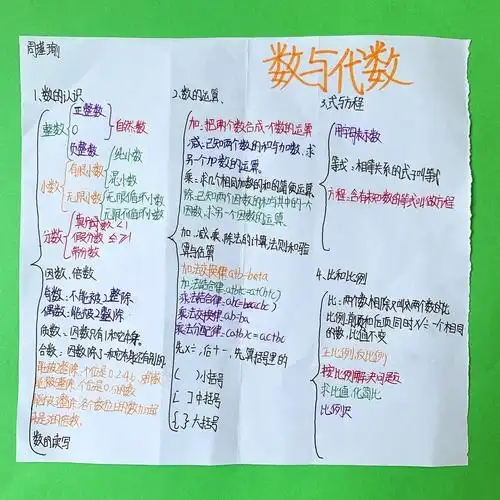 数与代数
1.数的认识
整数
正整数
0
自然数
负整数
小数
有限小数
无限小数
纯小数
混小数
无限循环小数
无限不循环小数
分数
真分数 <1
假分数 ≥1
带分数
因数、倍数
奇数:不能被2整除
偶数:能被2整除
质数:因数只有1和它本身。
合数:因数除了1和它本身还有别的
数的读写
2.数的运算、
加:把两个数合成一个数的运算
减:已知两个加数的和与加数,求
另一个加数的运算。
乘:求几个相同加数的和的简便运算
除:已知两个因数的积与其中的一个
因数,求另一个因数的运算。
加、减、乘、除法的计算法则和验
算与估算
加法交换律a+b=b+a
加法结合律:a+b+c=a+(b+c)
乘法结合律:abc=
乘法交换律ab=ba
乘法分配律:(a+b)x=
先×÷,后+-,先算括号里的
( )小括号
[ ]中括号
{ }大括号
3.式与方程
用字母表示数
等式:相等关系的式子叫等式
方程:含有未知数的等式叫做方程
4.比和比例
比:两个数相除又叫做两个数的比
比例:前项和后项同时×/÷一个相同
的数,比值不变
正比例,反比例
按比例解决问题
求比值,化简比
比例尺